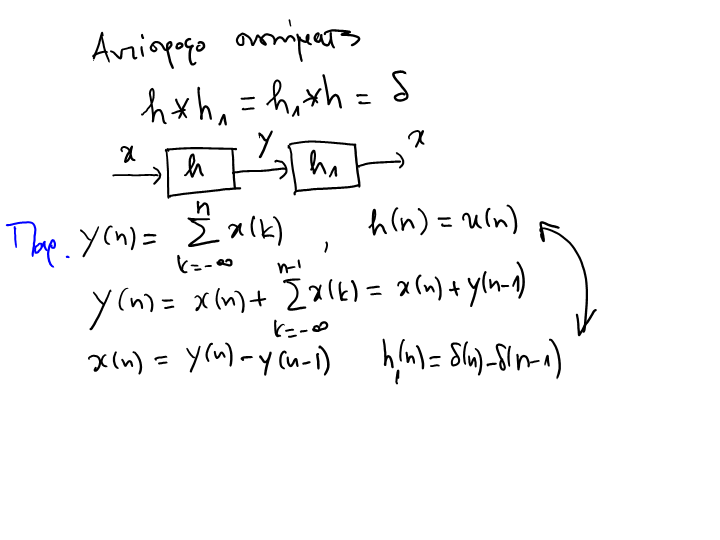 Αντίστροφο σύστημα
h*h₁ = h₁*h = δ
x h y h₁ x
Παρ. y(n) = ∑_{k=-∞}^{n} x(k) , h(n) = u(n)
y(n) = x(n) + ∑_{k=-∞}^{n-1} x(k) = x(n) + y(n-1)
x(n) = y(n) - y(n-1) h₁(n) = δ(n) - δ(n-1)